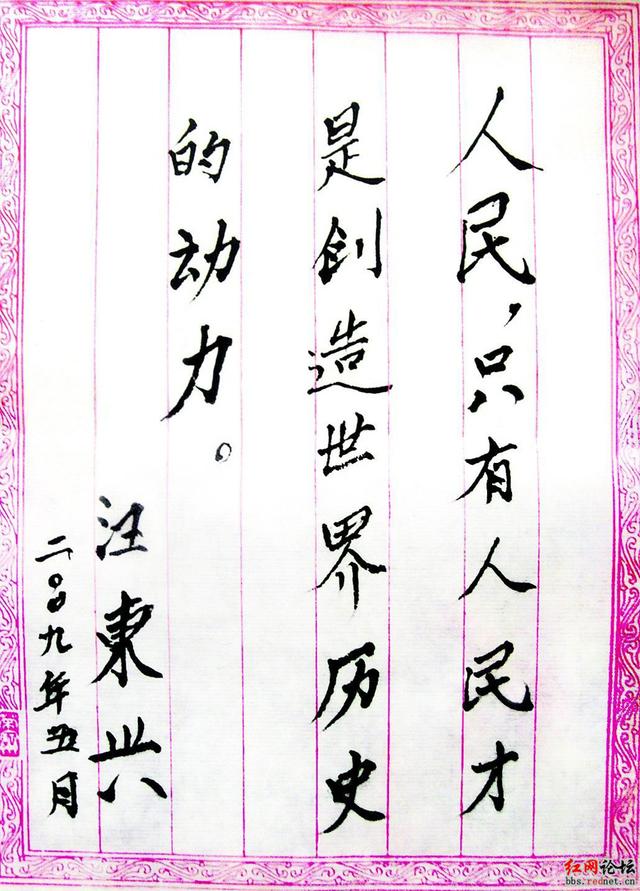 人民,只有人民才
是创造世界历史
的动力。
汪東兴
二〇〇九年五月
红网论坛
bbs.rednet.cn